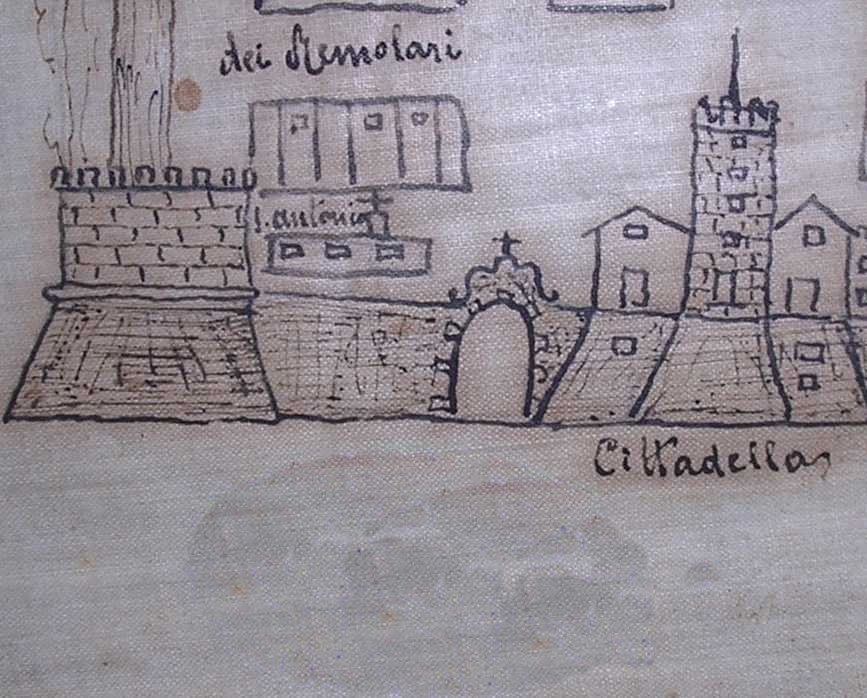 dei Remolari
S. antonio
Cittadella